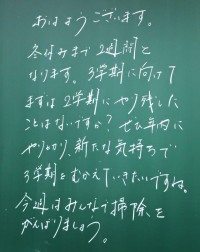 おはようございます。
冬休みまで2週間と
なります。3学期に向けて
まずは2学期にやり残した
ことはないですか?ぜひ年内に
やりきり、新たな気持ちで
3学期をむかえていきたいですね。
今週はみんなで掃除を
がんばりましょう。